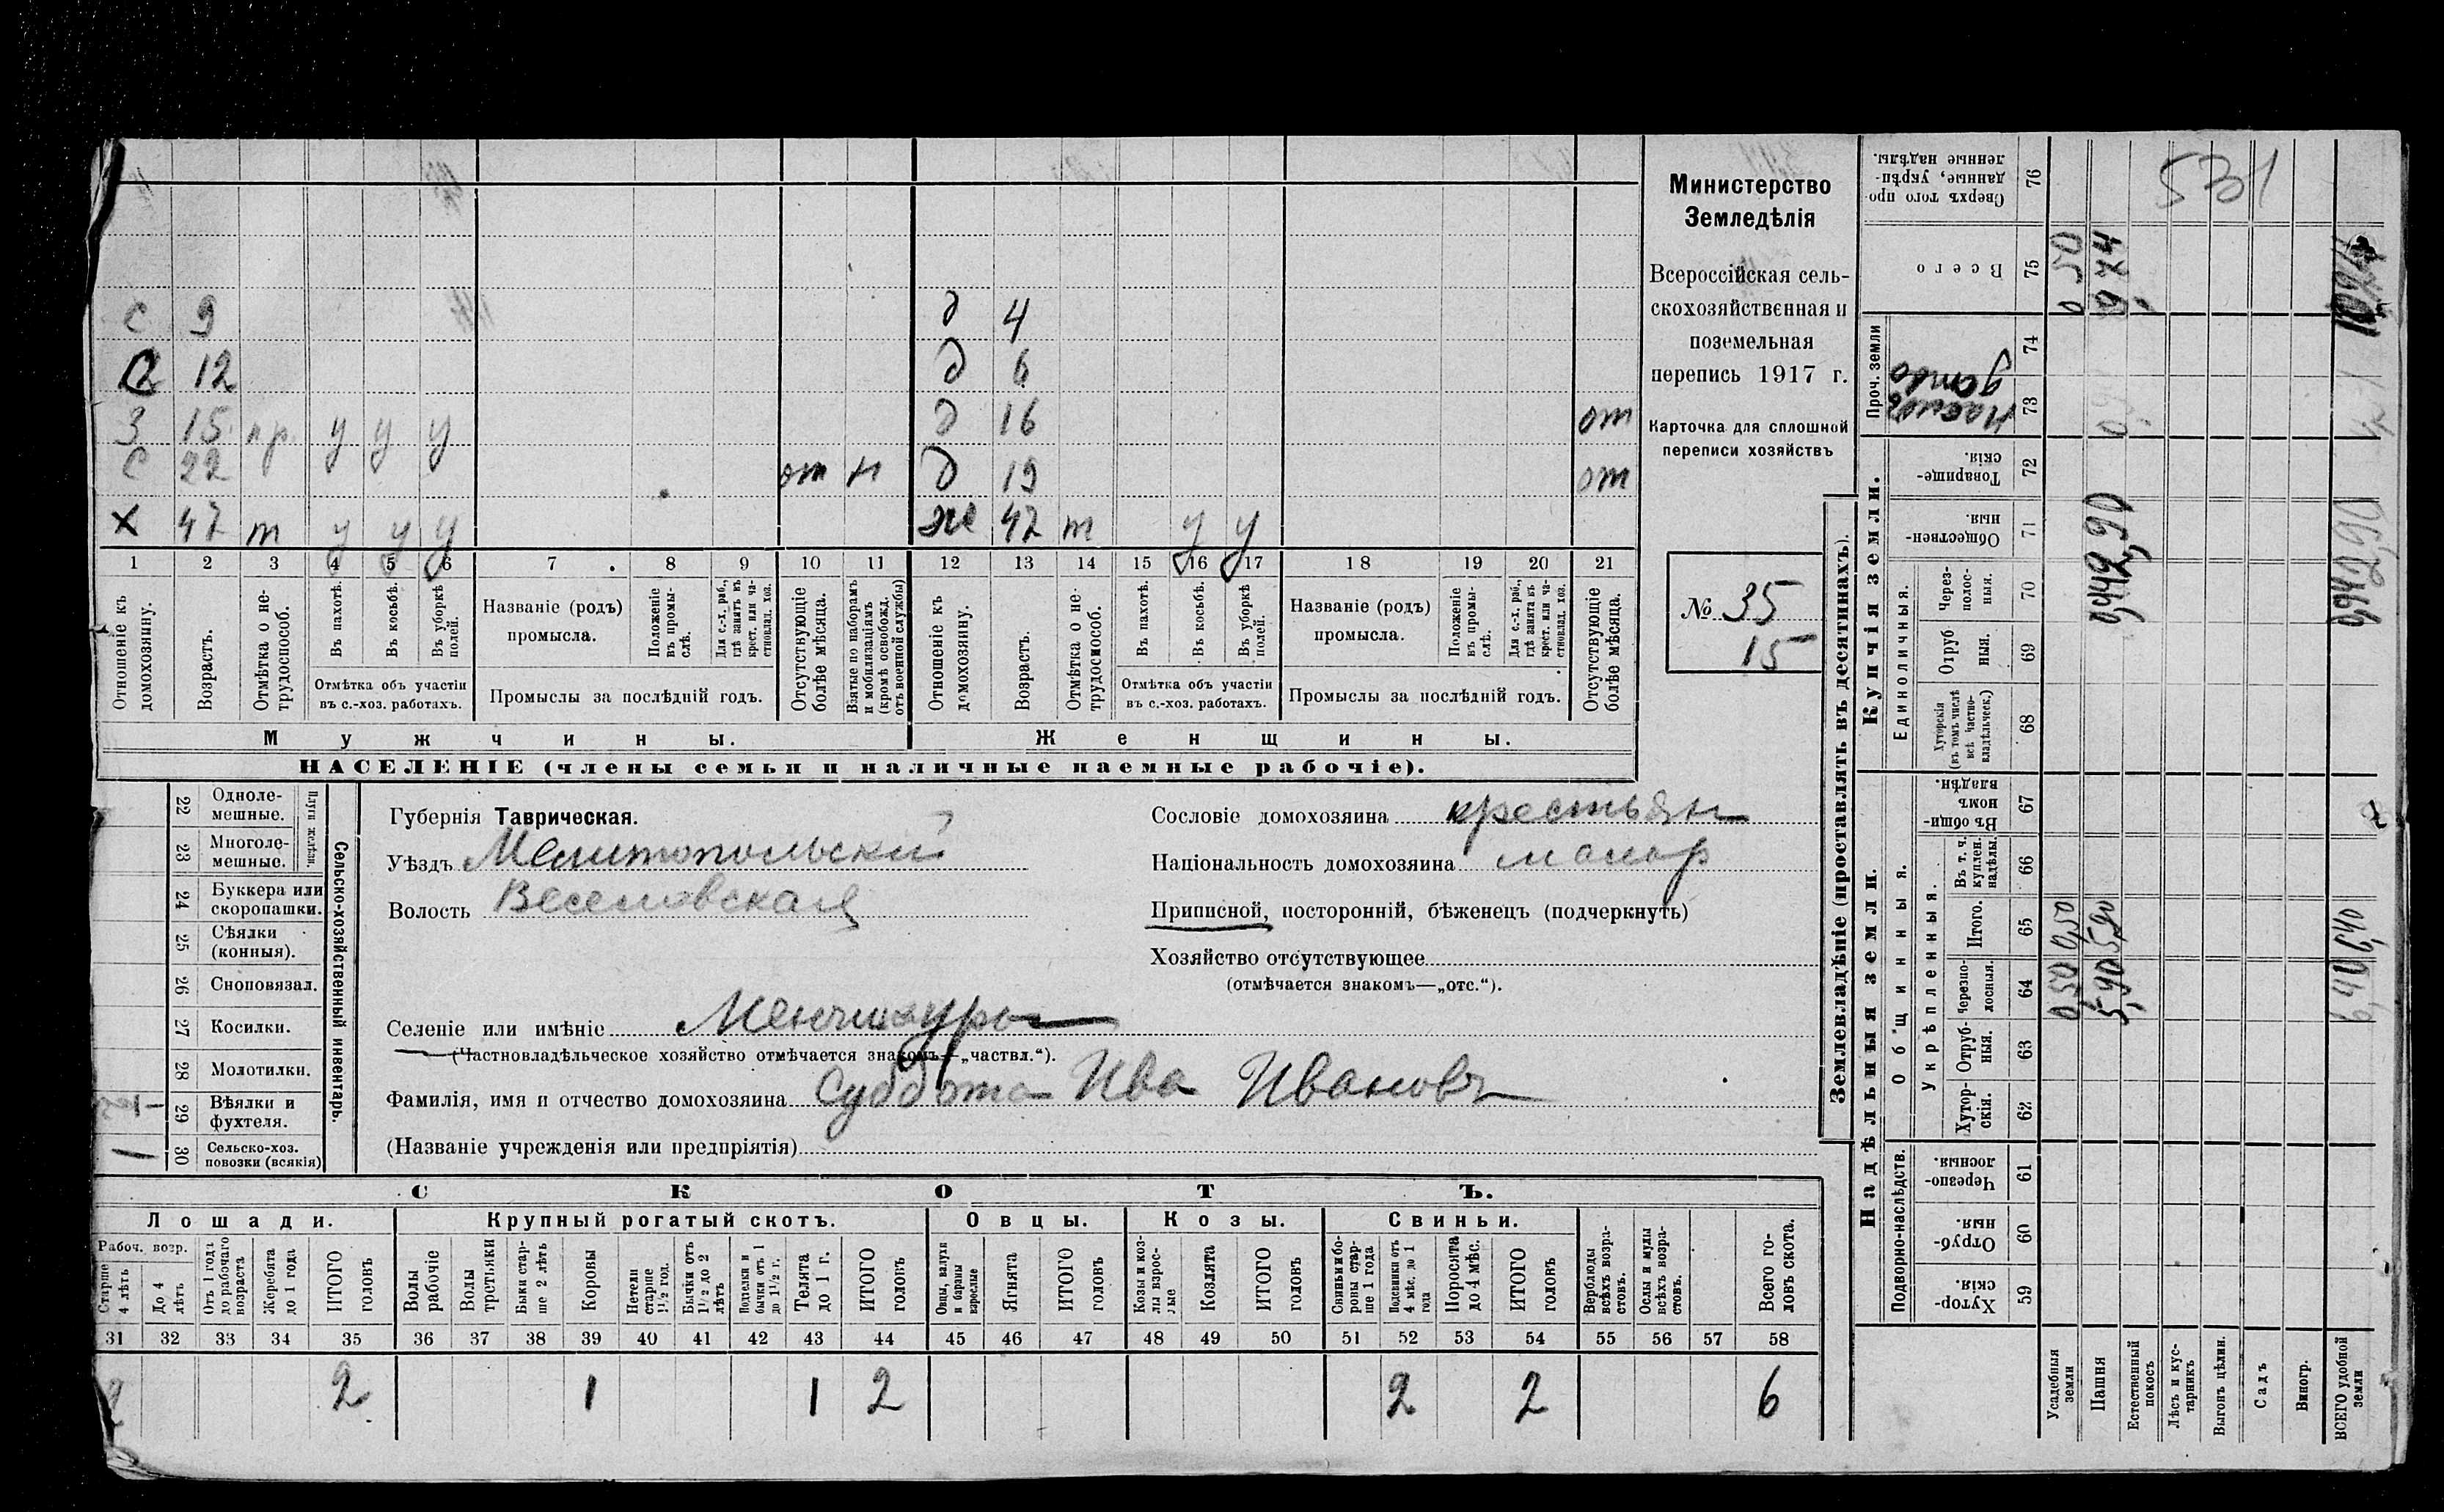 с 9 д 4
12 д 6
З 15 пр. у у у д 16 от
с 22 от н д 19 от
х 47 т у у у же 47 т у у
1 2 3 4 5 6 7 8 9 10 11 12 13 14 15 16 17 18 19 20 21
Отношеніе къ домохозяину.
Возрастъ.
Отмѣтка о не-трудоспособ.
Въ пахотѣ.
Въ косьбѣ.
Въ уборкѣ полей.
Отмѣтка объ участіи
въ с.-хоз. работахъ.
Названіе (родъ)
промысла.
Положеніе въ промы-слѣ.
Для с.-х. раб., гдѣ занятъ въ крест. или ча-стновлад. хоз.
Промыслы за послѣдній годъ.
Отсутствующіе болѣе мѣсяца.
Взятые по наборамъ и мобилизаціямъ (кромѣ освобожд. отъ военной службы)
Отношеніе къ домохозяину.
Возрастъ.
Отмѣтка о не-трудоспособ.
Въ пахотѣ.
Въ косьбѣ.
Въ уборкѣ полей.
Отмѣтка объ участіи
въ с.-хоз. работахъ.
Названіе (родъ)
промысла.
Положеніе въ промы-слѣ.
Для с.-х. раб., гдѣ занята въ крест. или ча-стновлад. хоз.
Промыслы за послѣдній годъ.
Отсутствующіе болѣе мѣсяца.
Мужчины. Женщины.
НАСЕЛЕНІЕ (члены семьи и наличные наемные рабочіе).
Министерство
Земледѣлія
Всероссійская сель-
скохозяйственная и
поземельная
перепись 1917 г.
Карточка для сплошной
переписи хозяйствъ
№ 35
15
Сельско-хозяйственный инвентарь.
Плуги желѣзн.
22 Одноле-
мешные.
23 Многоле-
мешные.
24 Буккера или
скоропашки.
25 Сѣялки
(конныя).
26 Сноповязал.
27 Косилки.
28 Молотилки.
29 Вѣялки и
фухтеля.
1 30 Сельско-хоз.
повозки (всякія)
Губернія Таврическая.
Уѣздъ Мелитопольскій
Волость Веселовская
Селеніе или имѣніе Менчикуры
(Частновладѣльческое хозяйство отмѣчается знакомъ—„частвл.“).
Фамилія, имя и отчество домохозяина Суббота Ива Ивановъ
(Названіе учрежденія или предпріятія)
Сословіе домохозяина крестьян
Національность домохозяина малор
Приписной, посторонній, бѣженецъ (подчеркнуть)
Хозяйство отсутствующее
(отмѣчается знакомъ—„отс.“).
СКОТЪ.
Лошади. Крупный рогатый скотъ. Овцы. Козы. Свиньи.
Рабоч. возр.
Старше 4 лѣтъ
До 4 лѣтъ
Отъ 1 года до рабочаго возраста
Жеребята до 1 года
ИТОГО головъ
Волы рабочіе
Волы третьяки
Быки стар-ше 2 лѣтъ
Коровы
Нетели старше 1½ год.
Бычки отъ 1½ до 2 лѣтъ
Подтелки и бычки отъ 1 до 1½ г.
Телята до 1 г.
ИТОГО головъ
Овцы, валухи и бараны взрослые
Ягнята
ИТОГО головъ
Козы и коз-лы взрос-лые
Козлята
ИТОГО головъ
Свиньи и бо-ровы стар-ше 1 года
Подсвинки отъ 4 мѣс. до 1 года
Поросята до 4 мѣс.
ИТОГО головъ
Верблюды всѣхъ возра-стовъ.
Ослы и мулы всѣхъ возра-стовъ.
Всего го-ловъ скота.
31 32 33 34 35 36 37 38 39 40 41 42 43 44 45 46 47 48 49 50 51 52 53 54 55 56 57 58
2 2 1 1 2 2 2 6
Землевладѣніе (проставлять въ десятинахъ).
Надѣльныя земли. Купчія земли. Проч. земли
Подворно-наслѣдств. Общинныя. Укрѣпленныя. Единоличныя.
Хутор-скія. 59
Отруб-ныя. 60
Черезпо-лосныя. 61
Хутор-скія. 62
Отруб-ныя. 63
Черезпо-лосныя. 64
Итого. 65
Въ т. ч. куплен. надѣлы. 66
Въ общи-номъ владѣн. 67
Хуторскія (въ томъ числѣ всѣ частно-владѣльческ.) 68
Отруб ныя. 69
Через-полос-ныя. 70
Обществен-ныя. 71
Товарище-скія. 72
73
74
Всего 75
Сверхъ того про-данные, укрѣп-ленные надѣлы. 76
531
Усадебныя земли 0,50 0,50 0 50
Пашня 5,90 5,90
Естественный покосъ
Лѣсъ и кус-тарникъ
Выгонъ цѣлин.
Садъ
Виногр.
ВСЕГО удобной земли 6,40 6,40